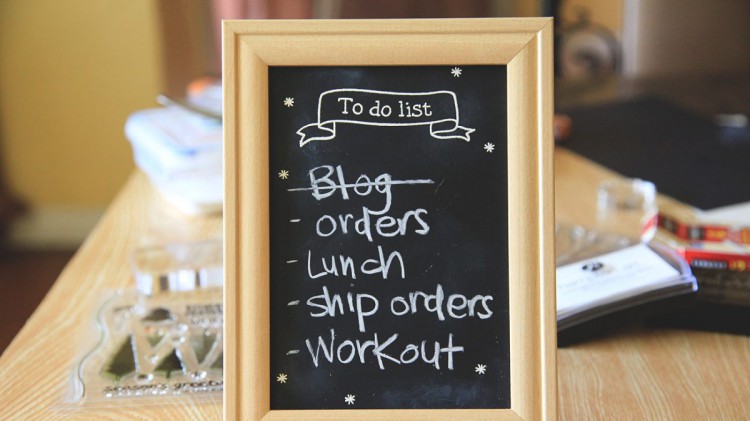 To do list
Blog
- orders
- Lunch
- ship orders
- Workout
season's greetings